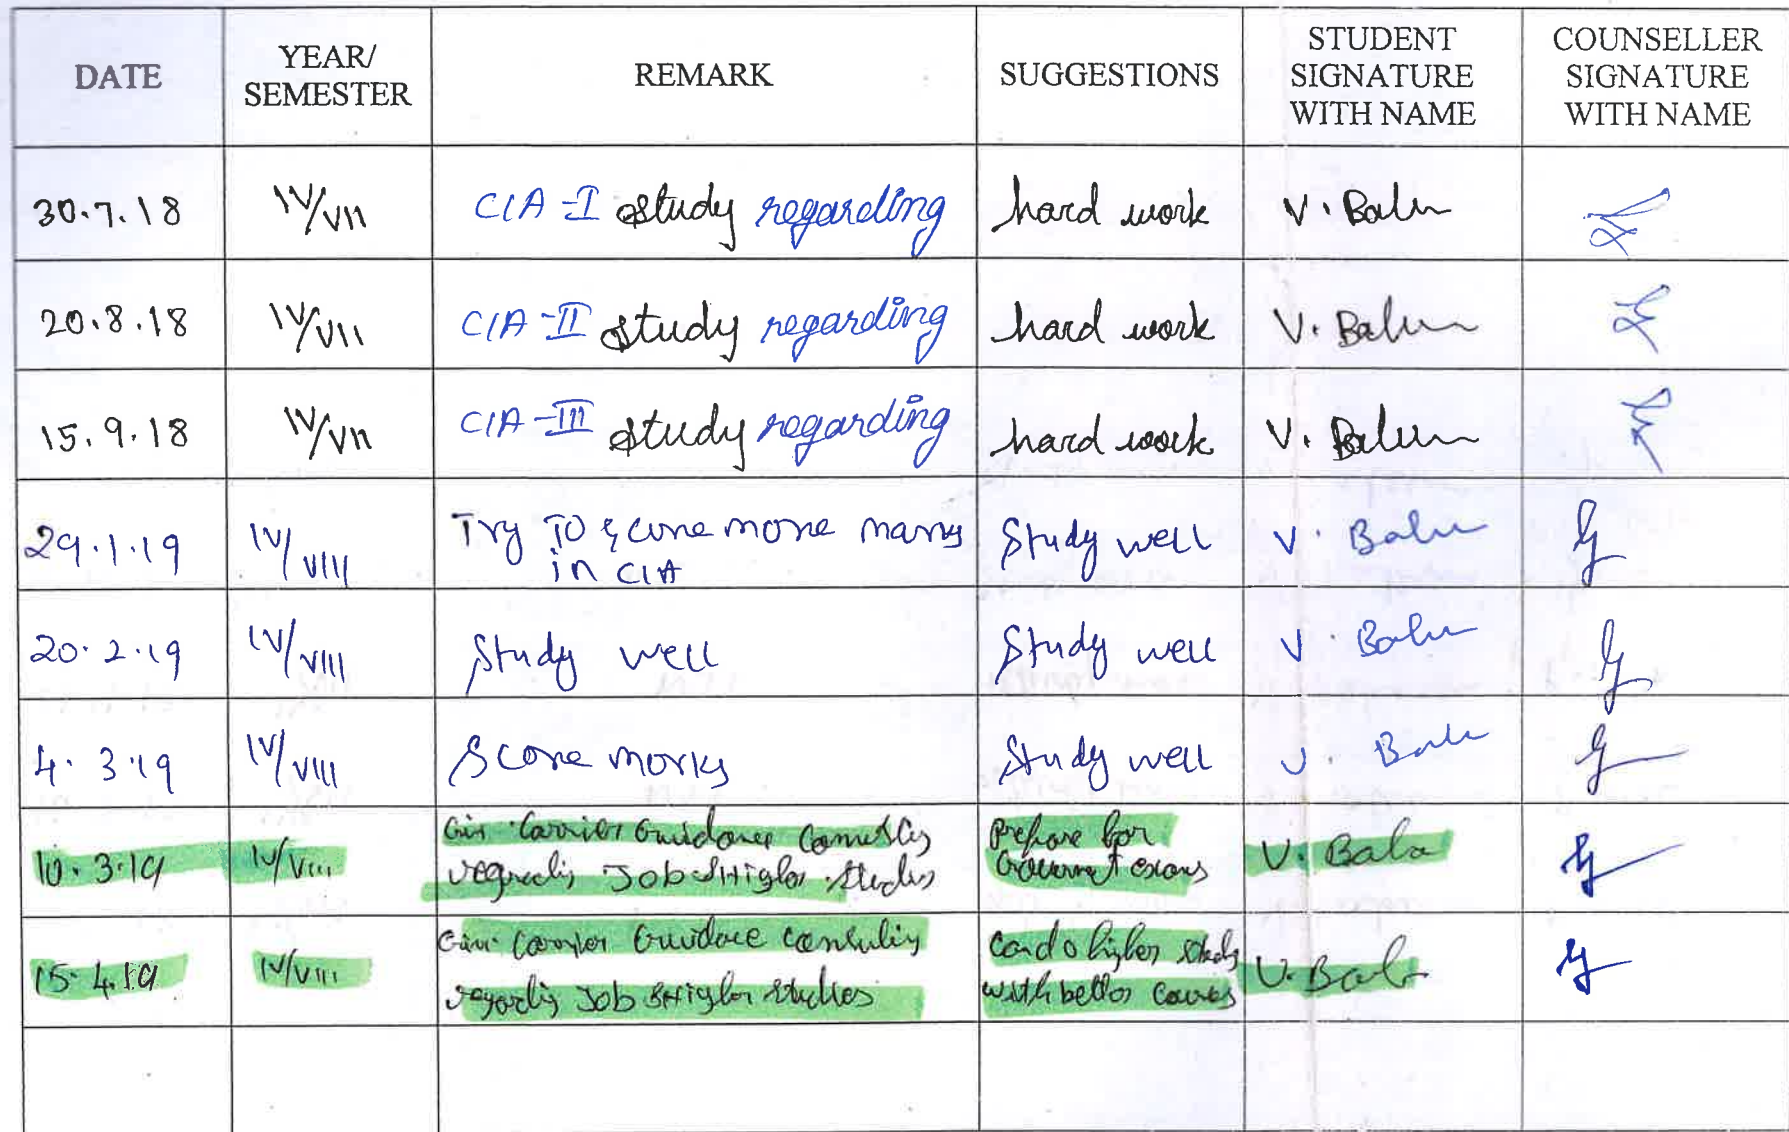 DATE
YEAR/
SEMESTER
REMARK
SUGGESTIONS
STUDENT
SIGNATURE
WITH NAME
COUNSELLER
SIGNATURE
WITH NAME
30.7.18
IV/VII
CIA-I study regarding
hard work
V. Balu
20.8.18
IV/VII
CIA-II study regarding
hard work
V. Balu
15.9.18
IV/VII
CIA-III study regarding
hard work
V. Balu
29.1.19
IV/VIII
Try TO Score more marks
in CIA
Study well
V. Balu
20.2.19
IV/VIII
Study well
Study well
V. Balu
4.3.19
IV/VIII
Score marks
Study well
V. Balu
10.3.19
IV/VIII
Carrier Guidance
Job Higher Studies
Prepare for
exams
V. Balu
15.4.19
IV/VIII
Carrier Guidance
Job Higher Studies
higher study
with better
V. Balu